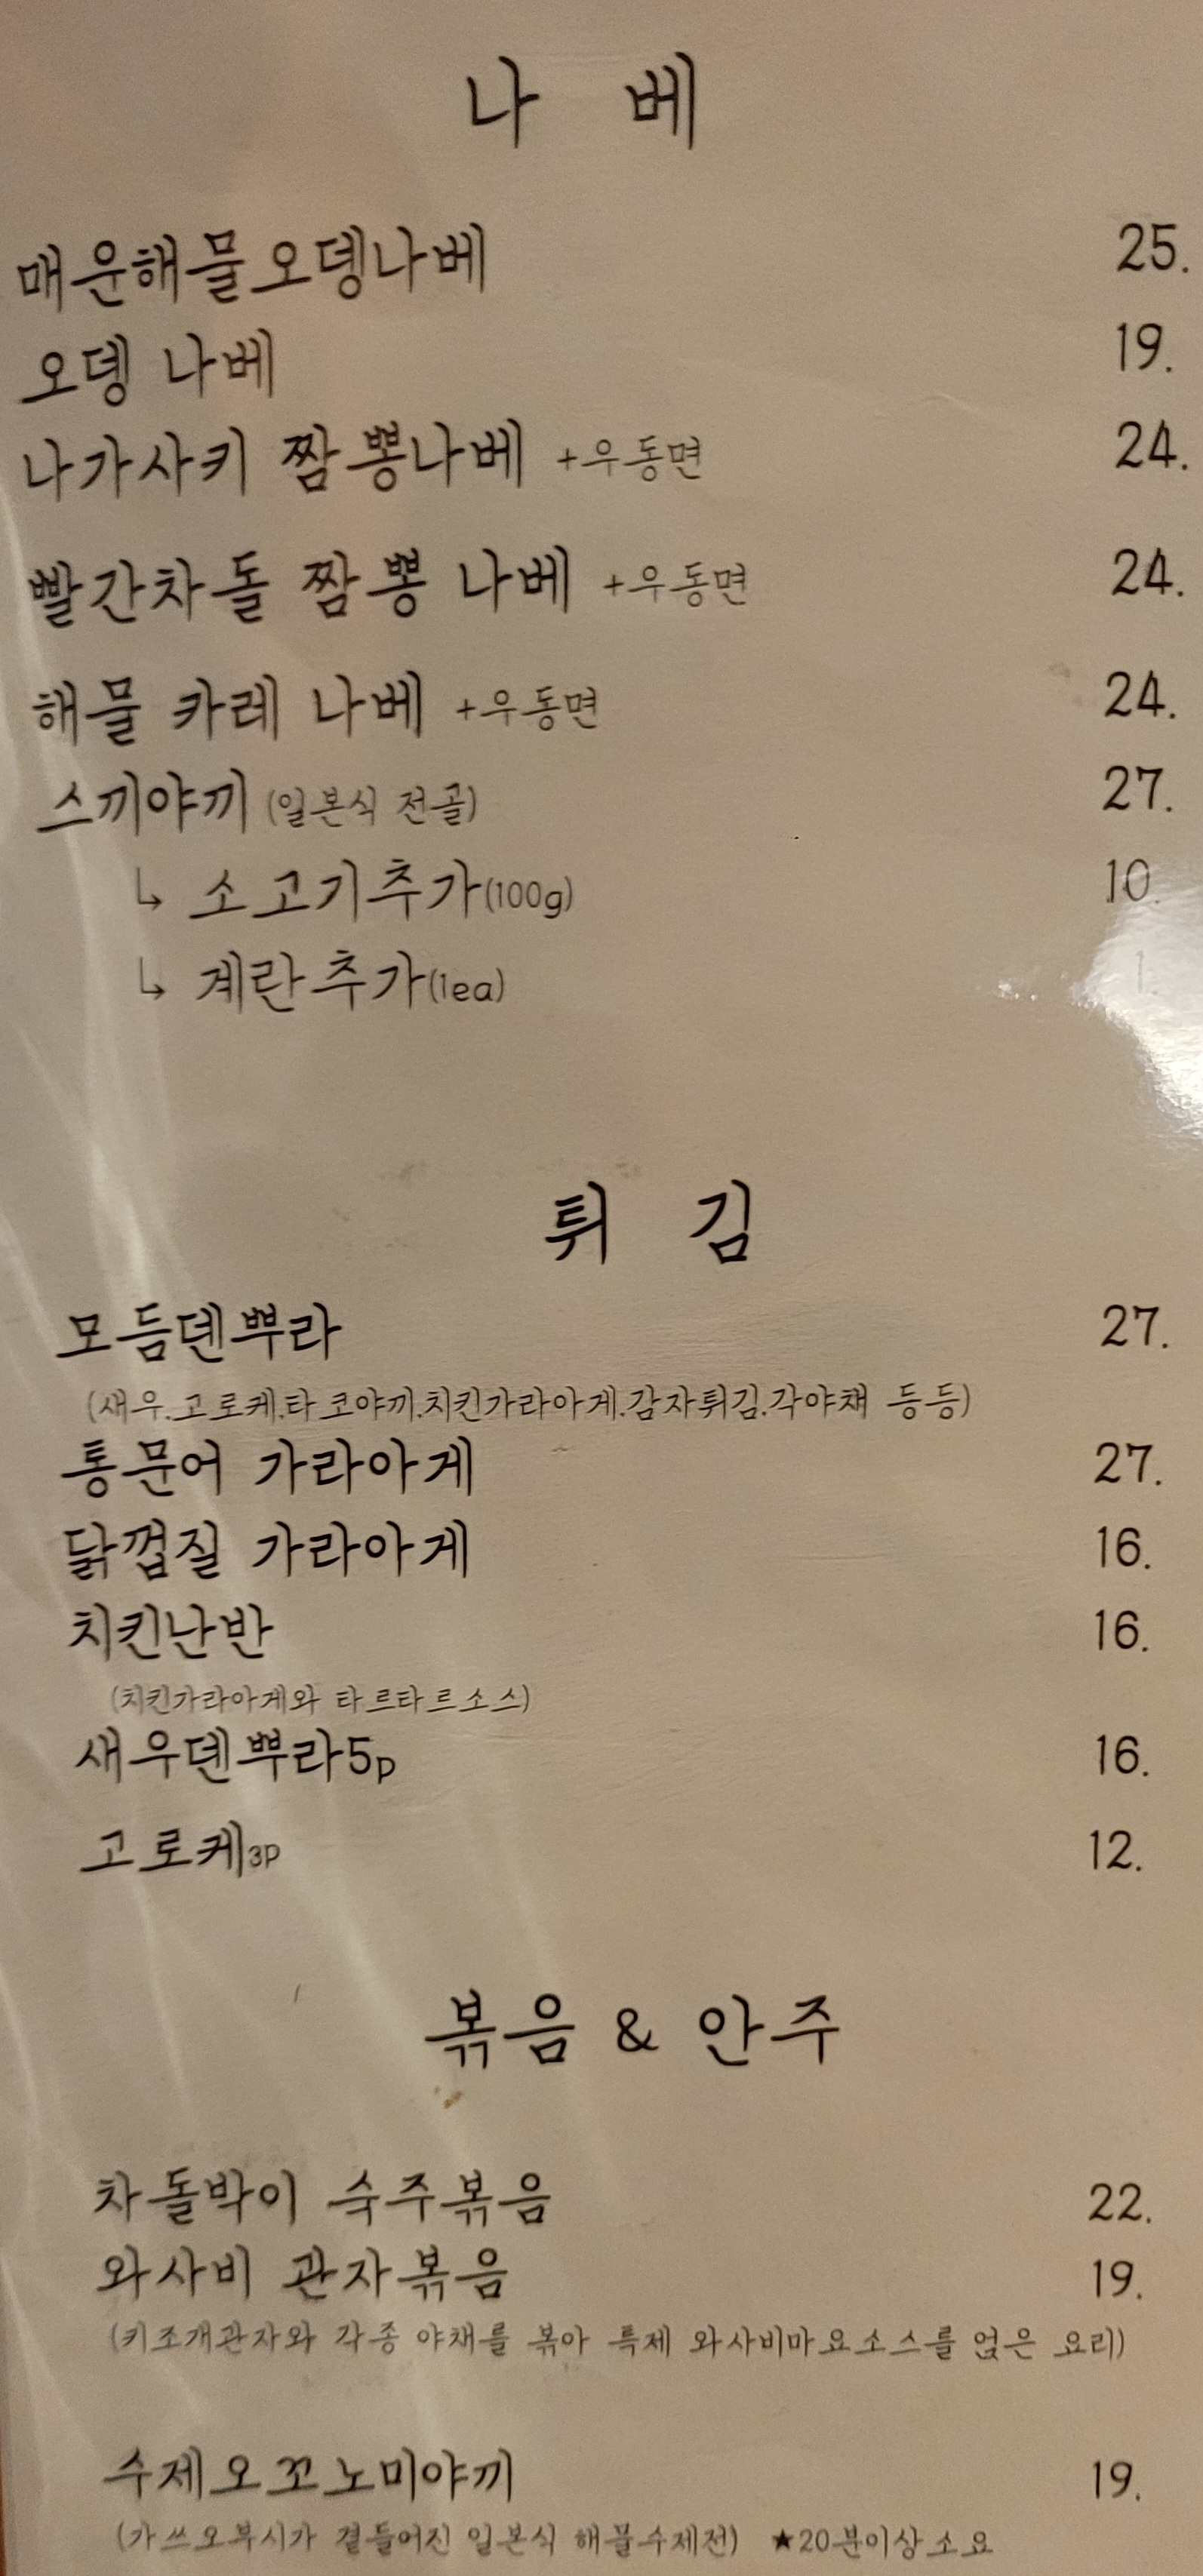 나 베
매운해물오뎅나베 25.
오뎅 나베 19.
나가사키 짬뽕나베 +우동면 24.
빨간차돌 짬뽕 나베 +우동면 24.
해물 카레 나베 +우동면 24.
스끼야끼 (일본식 전골) 27.
↳ 소고기추가(100g) 10.
↳ 계란추가(1ea) 1.
튀 김
모듬덴뿌라 27.
(새우.고로케.타코야끼.치킨가라아게.감자튀김.각야채 등등)
통문어 가라아게 27.
닭껍질 가라아게 16.
치킨난반 16.
(치킨가라아게와 타르타르소스)
새우덴뿌라5p 16.
고로케3P 12.
볶음 & 안주
차돌박이 숙주볶음 22.
와사비 관자볶음 19.
(키조개관자와 각종 야채를 볶아 특제 와사비마요소스를 얹은 요리)
수제오꼬노미야끼 19.
(가쓰오부시가 곁들어진 일본식 해물수제전) ★20분이상소요